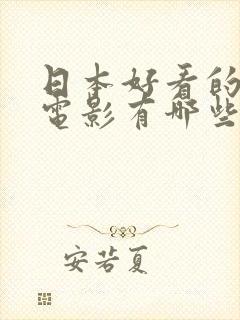 日本好看的
電影有哪些
安若夏